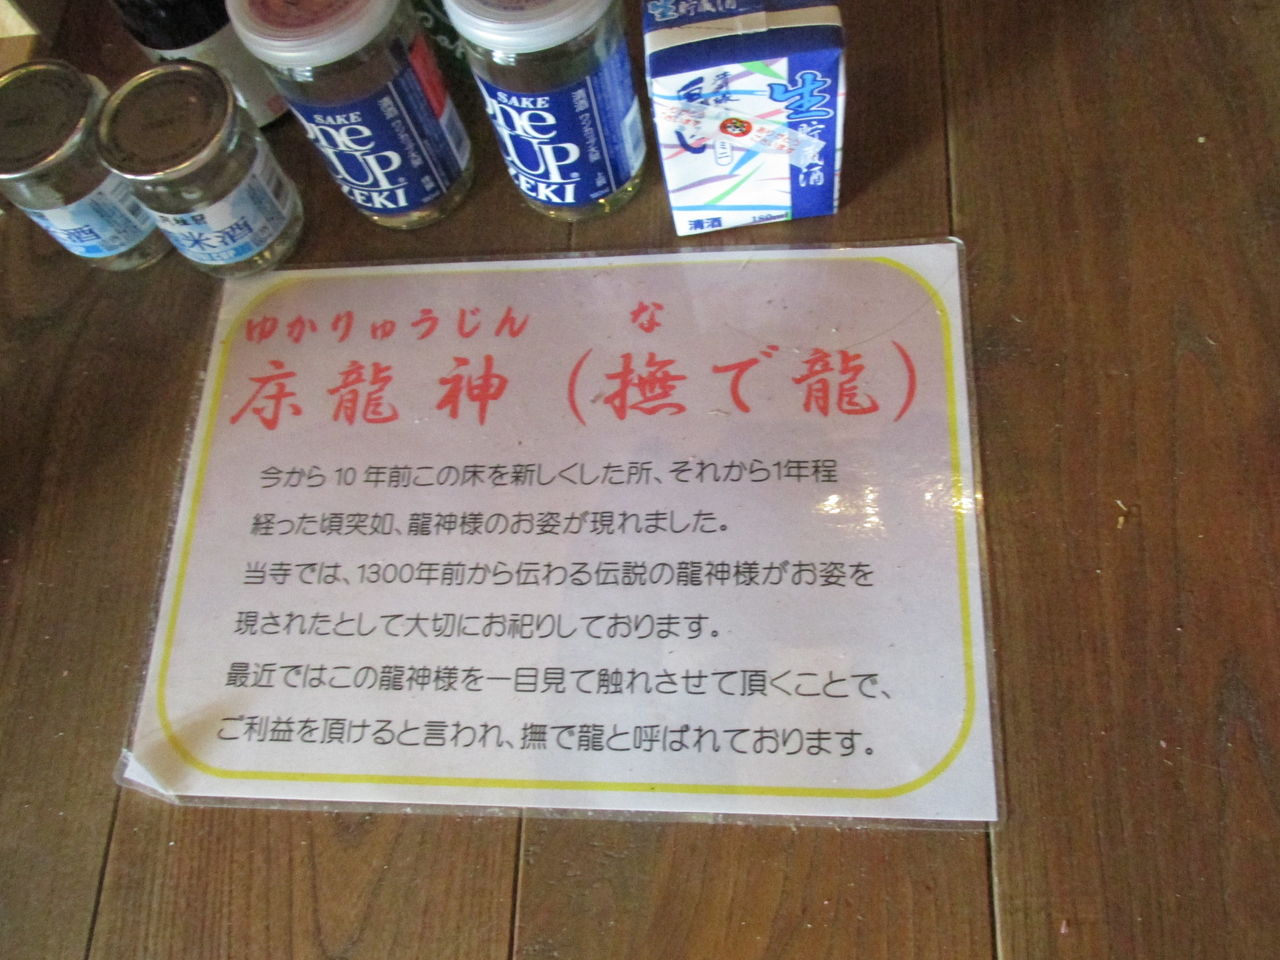 SAKE
One
CUP
OZEKI
SAKE
One
CUP
OZEKI
米酒
米酒
生
貯蔵酒
生
貯蔵酒
ミニ
清酒
180ml
ゆかりゅうじん な
床龍神(撫で龍)
今から10年前この床を新しくした所、それから1年程
経った頃突如、龍神様のお姿が現れました。
当寺では、1300年前から伝わる伝説の龍神様がお姿を
現されたとして大切にお祀りしております。
最近ではこの龍神様を一目見て触れさせて頂くことで、
ご利益を頂けると言われ、撫で龍と呼ばれております。